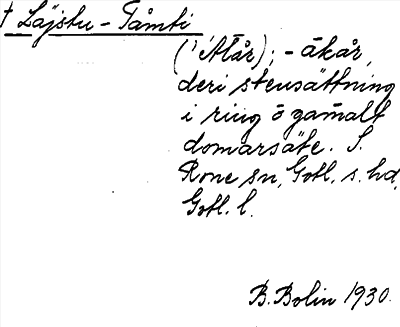 † Läjstu-Tåmti
('Åtår); - åkår,
deri stensättning
i ring o gamalt
domarsäte. S.
Rone sn, Gotl. s. hd,
Gotl. l.
B. Bolin 1930.